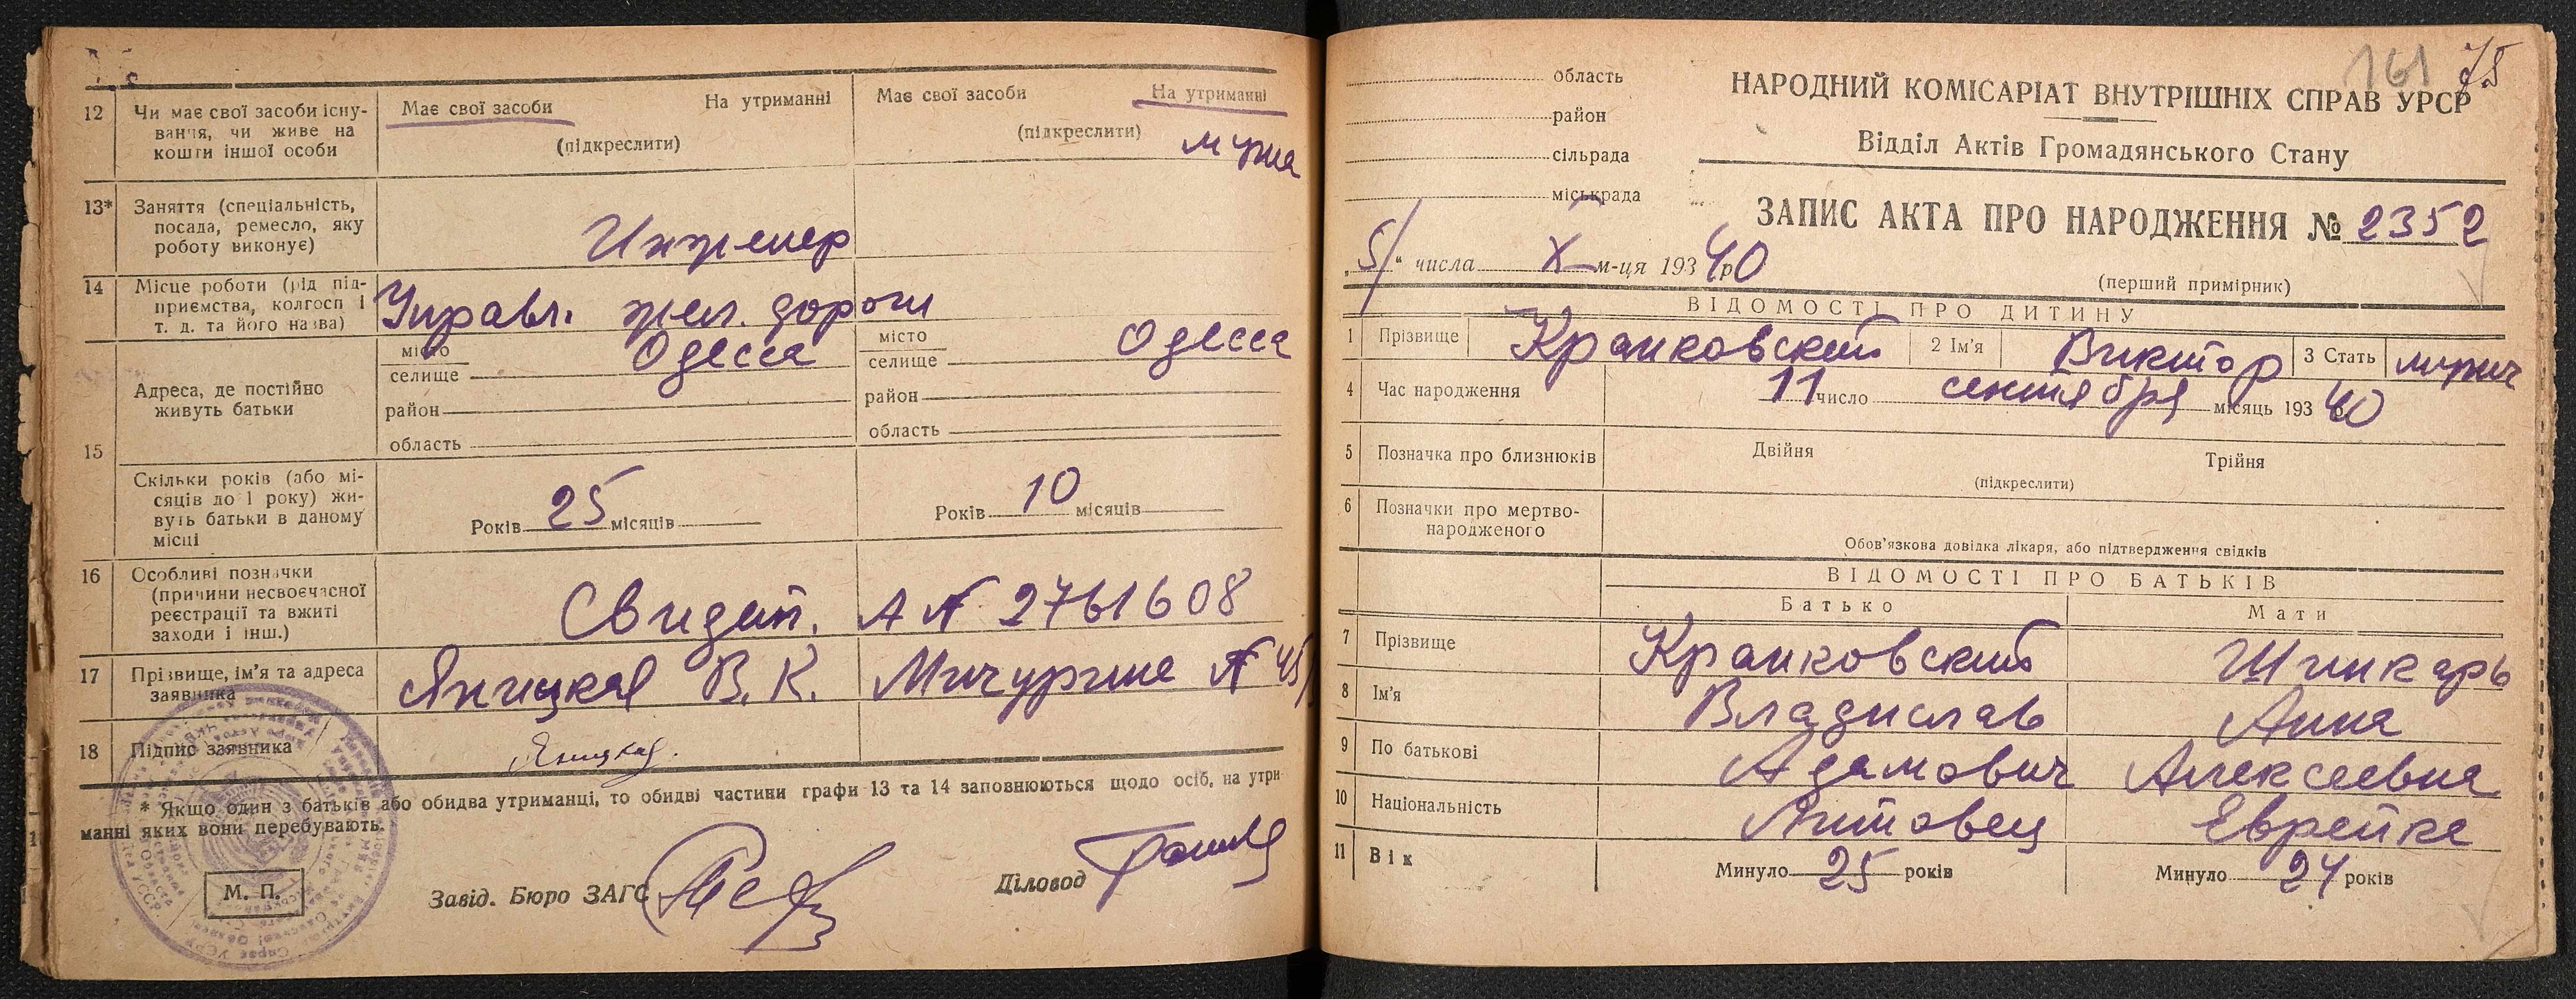 12 Чи має свої засоби існування, чи живе на кошти іншої особи
Має свої засоби На утриманні
(підкреслити)
Має свої засоби На утриманні
(підкреслити)
мужа
13* Заняття (спеціальність, посада, ремесло, яку роботу виконує)
Инженер
14 Місце роботи (рід підприємства, колгосп і т. д. та його назва)
Управл. жел. дороги
15 Адреса, де постійно живуть батьки
місто Одесса
селище
район
область
місто Одесса
селище
район
область
Скільки років (або місяців до 1 року) живуть батьки в даному місці
Років 25 місяців
Років 10 місяців
16 Особливі позначки (причини несвоєчасної реєстрації та вжиті заходи і інш.)
Свидет. А № 2761608
17 Прізвище, ім'я та адреса заявника
Яницкая В. К. Мичурина № 45
18 Підпис заявника
Яницкая.
* Якщо один з батьків або обидва утриманці, то обидві частини графи 13 та 14 заповнюються щодо осіб, на утри-
манні яких вони перебувають.
М. П.
Завід. Бюро ЗАГС
Діловод
161 75
область
район
сільрада
міськрада
НАРОДНИЙ КОМІСАРІАТ ВНУТРІШНІХ СПРАВ УРСР
Відділ Актів Громадянського Стану
ЗАПИС АКТА ПРО НАРОДЖЕННЯ № 2352
„5" числа X м-ця 193 40 р
(перший примірник)
ВІДОМОСТІ ПРО ДИТИНУ
1 Прізвище Крайковский 2 Ім'я Виктор 3 Стать мужч
4 Час народження 11 число сентября місяць 193 40
5 Позначка про близнюків Двійня Трійня
(підкреслити)
6 Позначки про мертвонародженого
Обов'язкова довідка лікаря, або підтвердження свідків
ВІДОМОСТІ ПРО БАТЬКІВ
Батько Мати
7 Прізвище Крайковский Шинкарь
8 Ім'я Владислав Анна
9 По батькові Адамович Алексеевна
10 Національність Литовец Еврейка
11 Вік Минуло 25 років Минуло 24 років